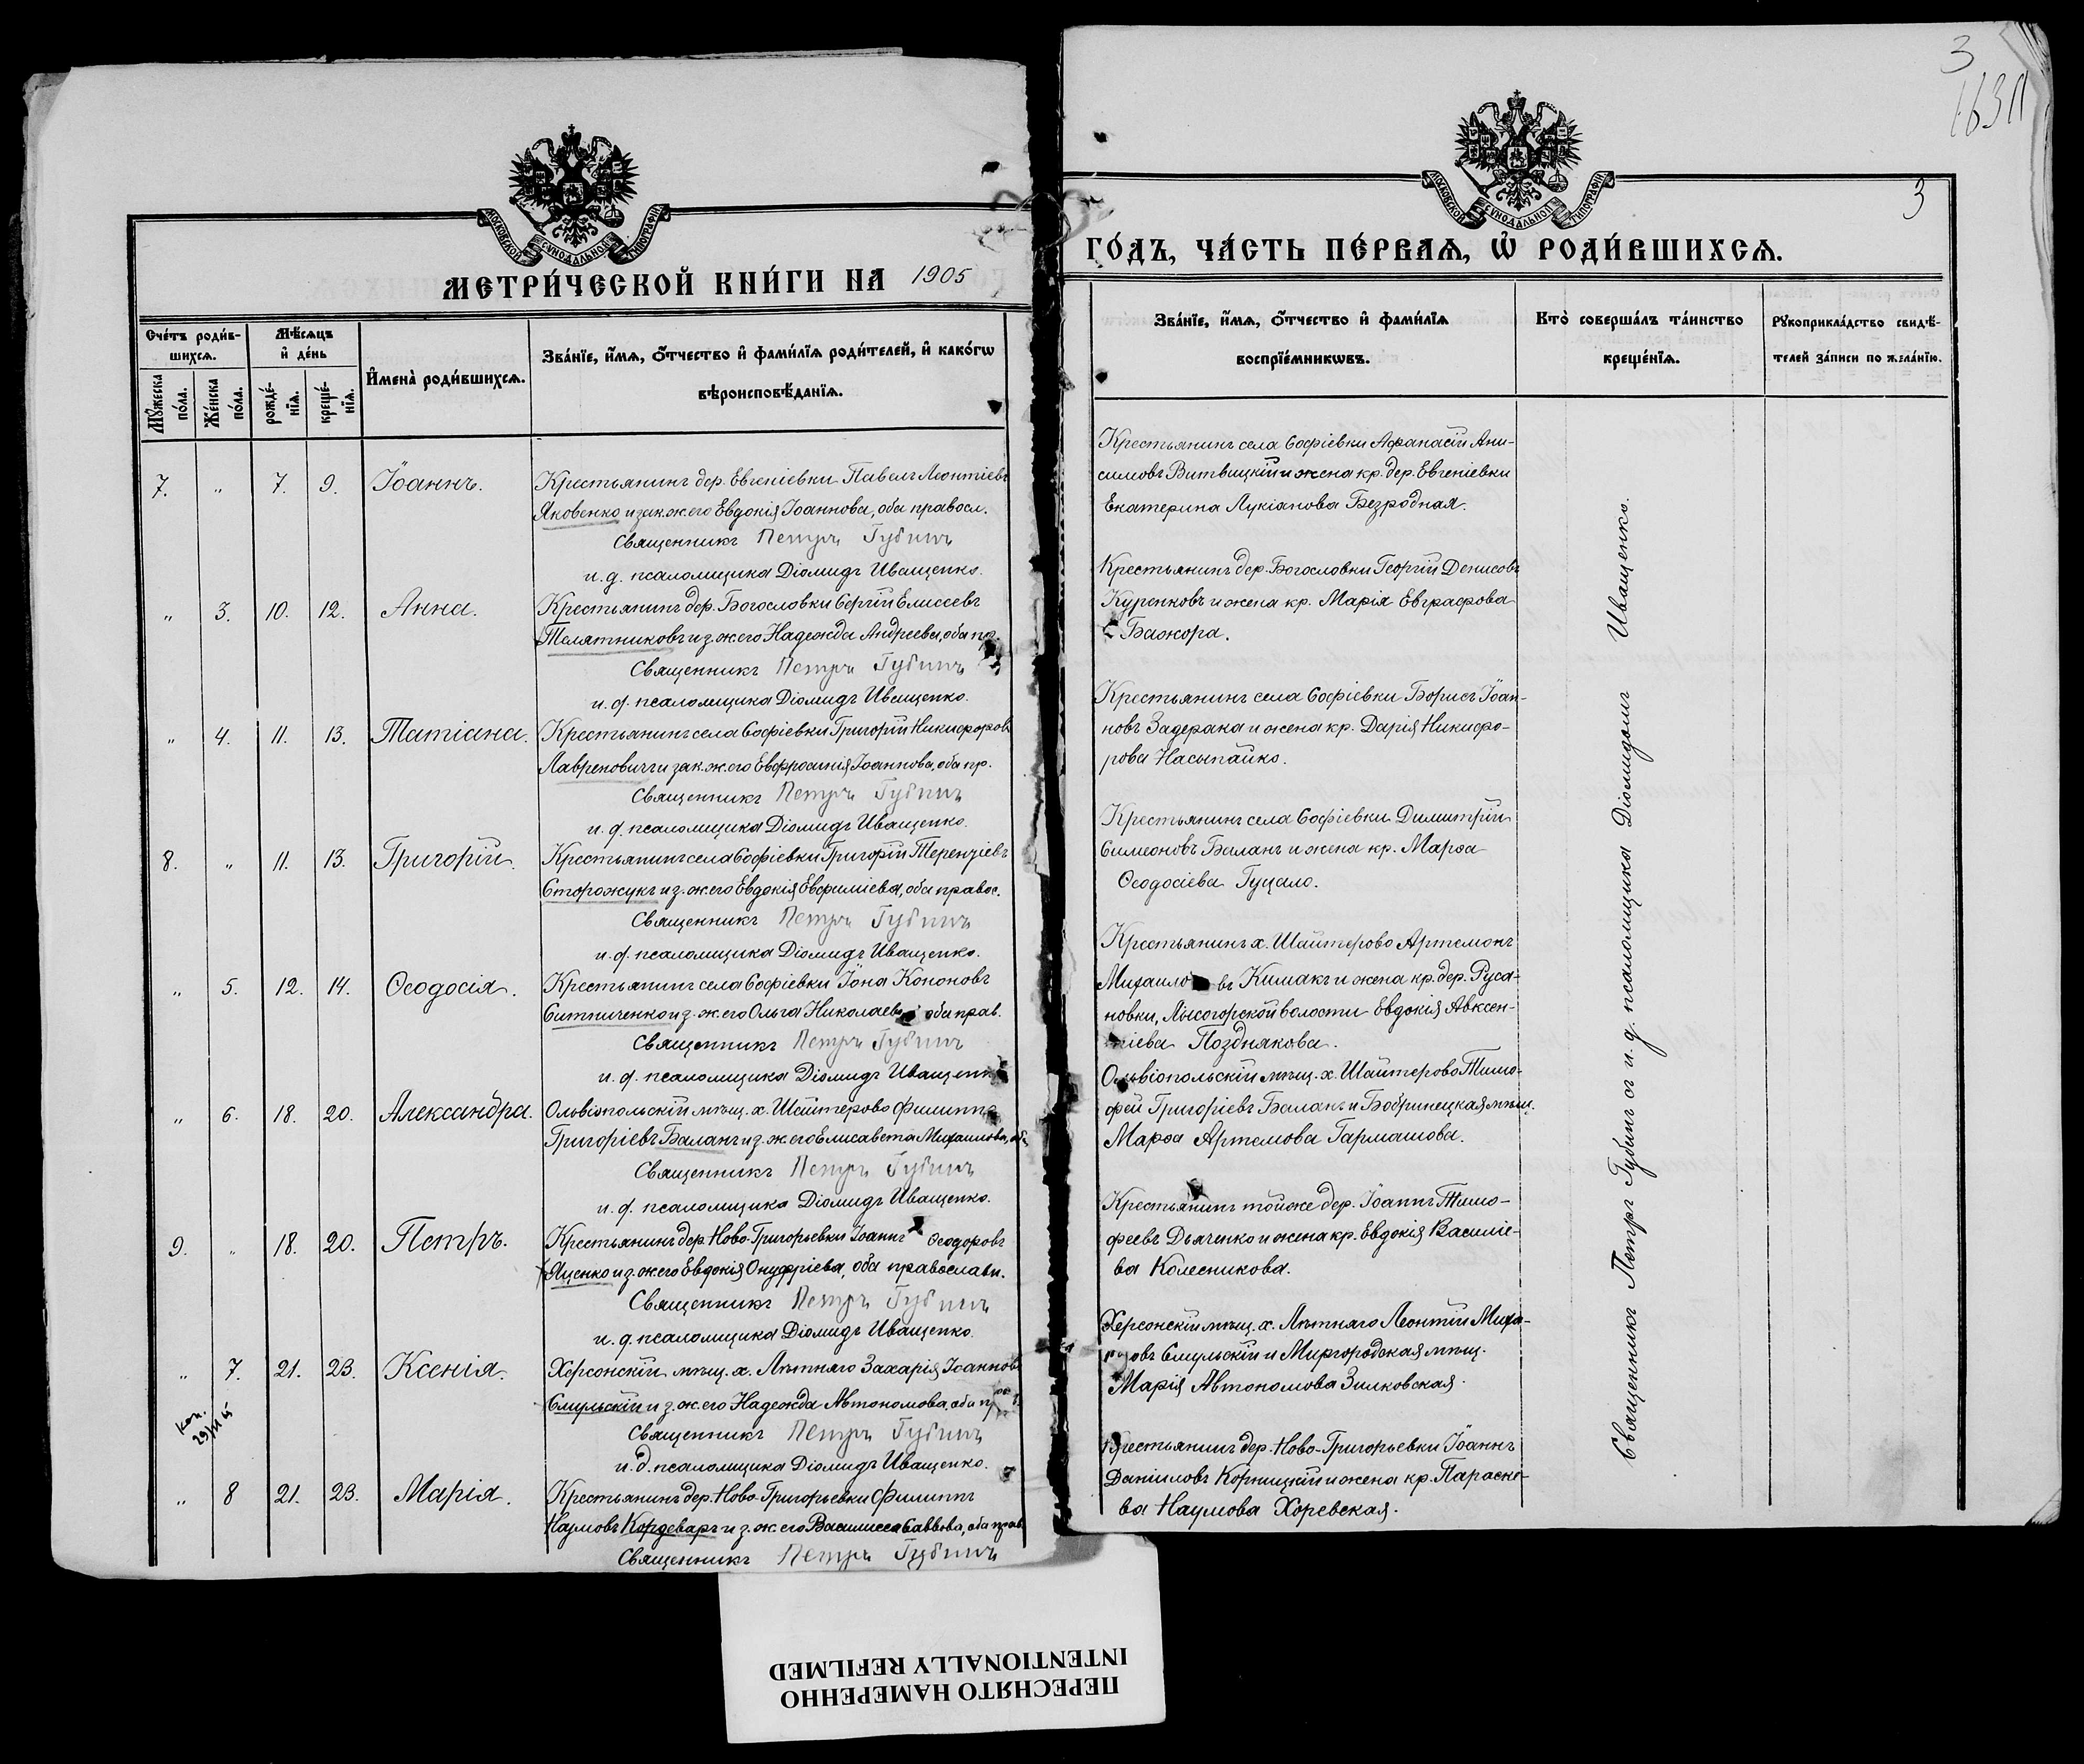 3
163П
МОСКОВСКОЙ СѴНОДАЛЬНОЙ ТИПОГРАФІИ
МОСКОВСКОЙ СѴНОДАЛЬНОЙ ТИПОГРАФІИ
3
МЕТРИ́ЧЕСКОЙ КНИ́ГИ НА 1905
ГО́ДЪ, ЧА́СТЬ ПЕ́РВАѦ, Ѡ҆ РОДИ́ВШИХСѦ.
Сче́тъ роди́в-
шихсѧ.
Мѣ́сѧцъ
и҆ де́нь
Мꙋ́жеска
по́ла.
Же́нска
по́ла.
рожде́-
нїѧ.
креще́-
нїѧ.
И҆мена̀ роди́вшихсѧ.
Зва́нїе, и҆́мѧ, ѻ҆́тчество и҆ фами́лїѧ роди́телей, и҆ како́гѡ
вѣроисповѣ́данїѧ.
Зва́нїе, и҆́мѧ, ѻ҆́тчество и҆ фами́лїѧ
воспрїе́мникѡвъ.
Кто̀ соверша́лъ та́инство
креще́нїѧ.
Рꙋкоприкла́дство свидѣ́-
телей за́писи по жела́нїю.
7. " 7. 9. Іоаннъ.
Крестьянинъ дер. Евгеніевки Павелъ Леонтіевъ
Яковенко и зак.ж. его Евдокія Іоаннова, оба правосл.
Священникъ Петръ Губинъ
и.д. псаломщика Діомидъ Иващенко.
Крестьянинъ села Софіевки Афанасій Ани-
симовъ Витвицкій и жена кр. дер. Евгеніевки
Екатерина Лукіанова Безродная.
" 3. 10. 12. Анна.
Крестьянинъ дер. Богословки Сергій Елисеевъ
Телятниковъ и з.ж его Надежда Андреева, оба пр.
Священникъ Петръ Губинъ
и.д. псаломщика Діомидъ Иващенко.
Крестьянинъ дер. Богословки Георгій Денисовъ
Куренковъ и жена кр. Марія Евграфова
Бажора.
" 4. 11. 13. Татіана.
Крестьянинъ села Софіевки Григорій Никифоровъ
Лавреновичъ и зак.ж. его Евфросинія Іоаннова, оба пр.
Священникъ Петръ Губинъ
и.д. псаломщика Діомидъ Иващенко.
Крестьянинъ села Софіевки Борисъ Іоан-
новъ Задерака и жена кр. Дарія Никифо-
рова Насыпайко.
8. " 11. 13. Григорій.
Крестьянинъ села Софіевки Григорій Терентіевъ
Сторожукъ и з.ж его Евдокія Евфиміева, оба правос.
Священникъ Петръ Губинъ
и.д. псаломщика Діомидъ Иващенко.
Крестьянинъ села Софіевки Димитрій
Симеоновъ Баланъ и жена кр. Марѳа
Ѳеодосіева Гуцало.
" 5. 12. 14. Ѳеодосія.
Крестьянинъ села Софіевки Іона Кононовъ
Ситниченко и з.ж. его Ольга Николаева оба прав.
Священникъ Петръ Губинъ
и.д. псаломщика Діомидъ Иващенко
Крестьянинъ х. Шайтерово Артемонъ
Михаиловъ Кимакъ и жена кр. дер. Руса-
новки, Лысогорской волости Евдокія Авксен-
тіева Позднякова.
" 6. 18. 20. Александра.
Ольвіопольскій мѣщ. х. Шайтерово Филиппъ
Григоріевъ Баланъ и з.ж его Елисавета Михаилова, об.
Священникъ Петръ Губинъ
и.д. псаломщика Діомидъ Иващенко.
Ольвіопольскій мѣщ. х. Шайтерово Тимо-
фей Григоріевъ Баланъ и Бобринецкая мѣщ.
Марѳа Артемова Гармашова.
9. " 18. 20. Петръ.
Крестьянинъ дер. Ново-Григорьевки Іоаннъ Ѳеодоровъ
Яценко и з.ж его Евдокія Онуфріева, оба православн.
Священникъ Петръ Губинъ
и.д. псаломщика Діомидъ Иващенко.
Крестьянинъ тойже дер. Іоаннъ Тимо-
феевъ Дьяченко и жена кр. Евдокія Василіе-
ва Колесникова.
" 7. 21. 23. Ксенія.
Херсонскій мѣщ. х. Лѣтняго Захарія Іоанновъ
Смульскій и з.ж. его Надежда Автономова, оба пр
Священникъ Петръ Губинъ
и.д. псаломщика Діомидъ Иващенко.
Херсонскій мѣщ. х. Лѣтняго Леонтій Миха-
иловъ Смульскій и Миргородская мѣщ.
Марія Автономова Зилковская.
Коп.
" 8 21. 23. Марія.
Крестьянинъ дер. Ново-Григорьевки Филиппъ
Наумовъ Кордеваръ и з.ж. его Василисса Саввова, оба прав.
Священникъ Петръ Губинъ
Крестьянинъ дер. Ново-Григорьевки Іоаннъ
Даніиловъ Корницкій и жена кр. Параске-
ва Наумова Хоревская.
Священникъ Петръ Губинъ съ и.д. псаломщика Діомидомъ Иващенко.
ПЕРЕСНЯТО НАМЕРЕННО
INTENTIONALLY REFILMED